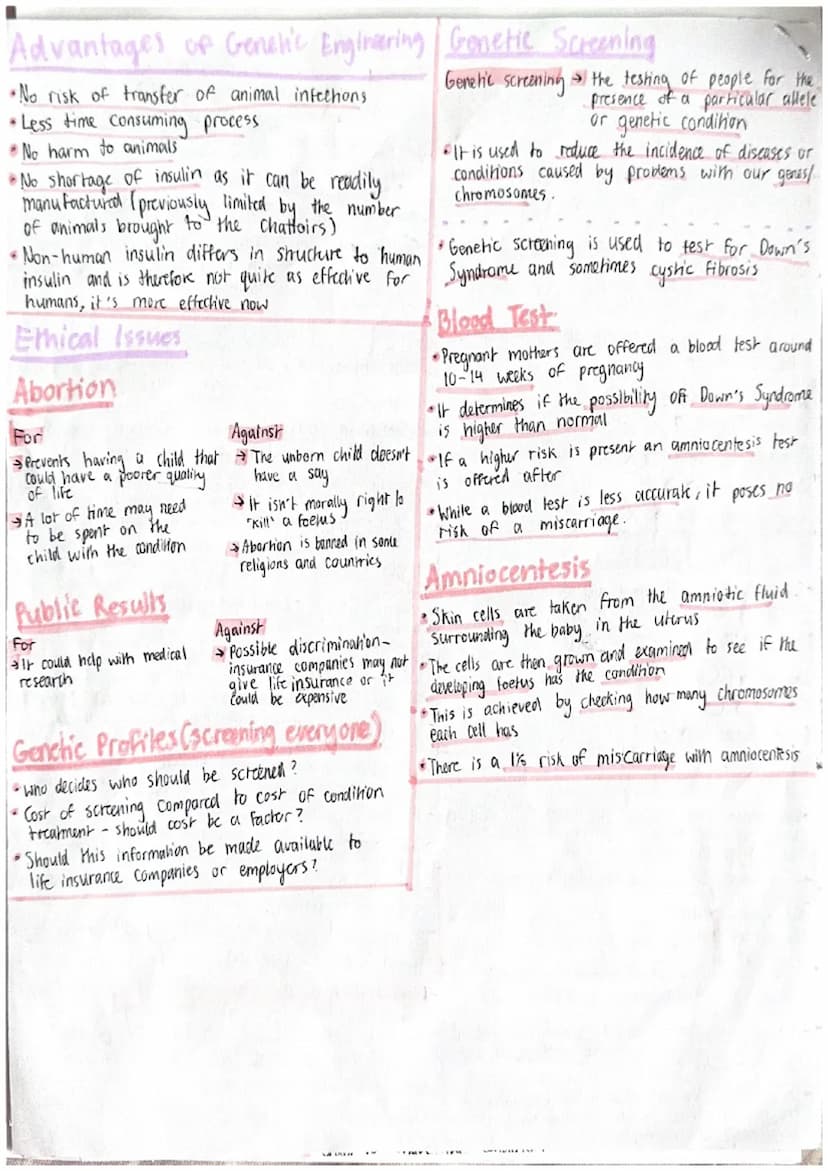 Advantages of Genetic Engineering
• No risk of transfer of animal infections
• Less time consuming process
• No harm to animals
• No shortage of insulin as it can be readily
manufactured (previously limited by the number
of animals brought to the Chattoirs)
• Non-human insulin differs in structure to human
insulin and is therefore not quite as effective for
humans, it's more effective now
Ethical Issues
Abortion
For
→ Prevents having a child that
could have a poorer quality
of life
→ A lot of time may need
to be spent on the
child with the condition
Against
→ The unborn child doesn't
have a say
→ It isn't morally right to
"kill" a foetus
→ Abortion is banned in some
religions and countries
Public Results
For
→ It could help with medical
research
Against
→ Possible discrimination-
insurance companies may not
give life insurance or it
could be expensive
Genetic Profiles (screening everyone)
• Who decides who should be screened?
• Cost of screening compared to cost of condition
treatment - should cost be a factor?
• Should this information be made available to
life insurance companies or employers?
Genetic Screening
Genetic screening → the testing of people for the
presence of a particular allele
or genetic condition
• It is used to reduce the incidence of diseases or
conditions caused by problems with our genes/
chromosomes.
• Genetic screening is used to test for Down's
Syndrome and sometimes cystic fibrosis
Blood Test
• Pregnant mothers are offered a blood test around
10-14 weeks of pregnancy
• It determines if the possibility of Down's Syndrome
is higher than normal
• If a higher risk is present an amniocentesis test
is offered after
• While a blood test is less accurate, it poses no
risk of a miscarriage.
Amniocentesis
• Skin cells are taken from the amniotic fluid
surrounding the baby in the uterus
• The cells are then grown and examined to see if the
developing foetus has the condition
• This is achieved by checking how many chromosomes
each cell has
• There is a 1% risk of miscarriage with amniocentesis